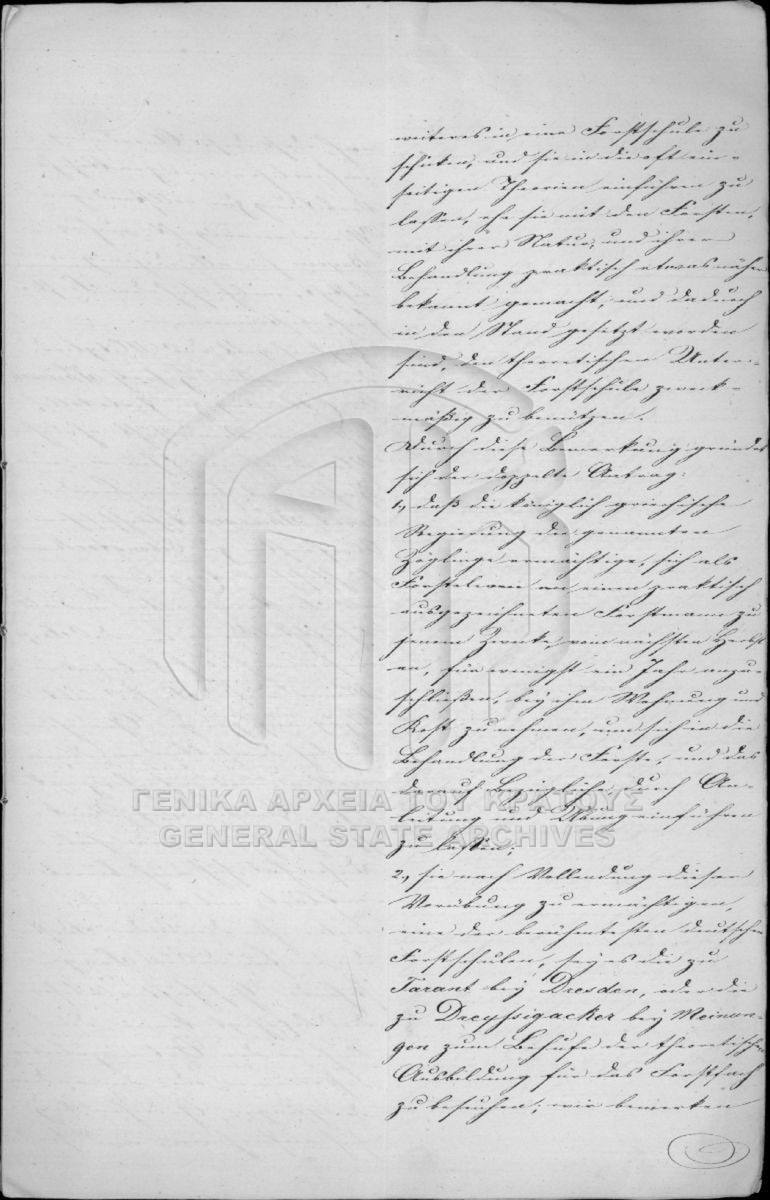 weiteres in eine Forstschule zu
schicken, und sie in die oft ein-
seitigen Theorien einführen zu
lassen, ehe sie mit den Forsten,
mit ihrer Natur, und ihrer
Behandlung praktisch etwas näher
bekannt gemacht, und dadurch
in den Stand gesetzt worden
sind, den theoretischen Unter-
richt der Forstschule zweck-
mäßig zu benützen.
Durch diese Bemerkung gründet
sich der doppelte Antrag:
1, daß die königlich griechische
Regierung die genannten
Zöglinge ermächtige, sich als
Forsteleven an einen praktisch
ausgezeichneten Forstmann zu
jenem Zwecke, vom nächsten Herbst
an, für wenigst ein Jahr anzu-
schließen, bey ihm Wohnung und
Kost zu nehmen, um sich in die
Behandlung der Forste, und das
darauf Bezügliche durch An-
leitung und Übung einführen
zu lassen;
2, sie nach Vollendung dieser
Vorübung zu ermächtigen,
eine der berühmtesten deutschen
Forstschulen, sey es die zu
Tarant bey Dresden, oder die
zu Dreyssigacker bey Meinun-
gen zum Behufe der theoretischen
Ausbildung für das Forstfach
zu besuchen; wir bemerken
ΓΕΝΙΚΑ ΑΡΧΕΙΑ ΤΟΥ ΚΡΑΤΟΥΣ
GENERAL STATE ARCHIVES